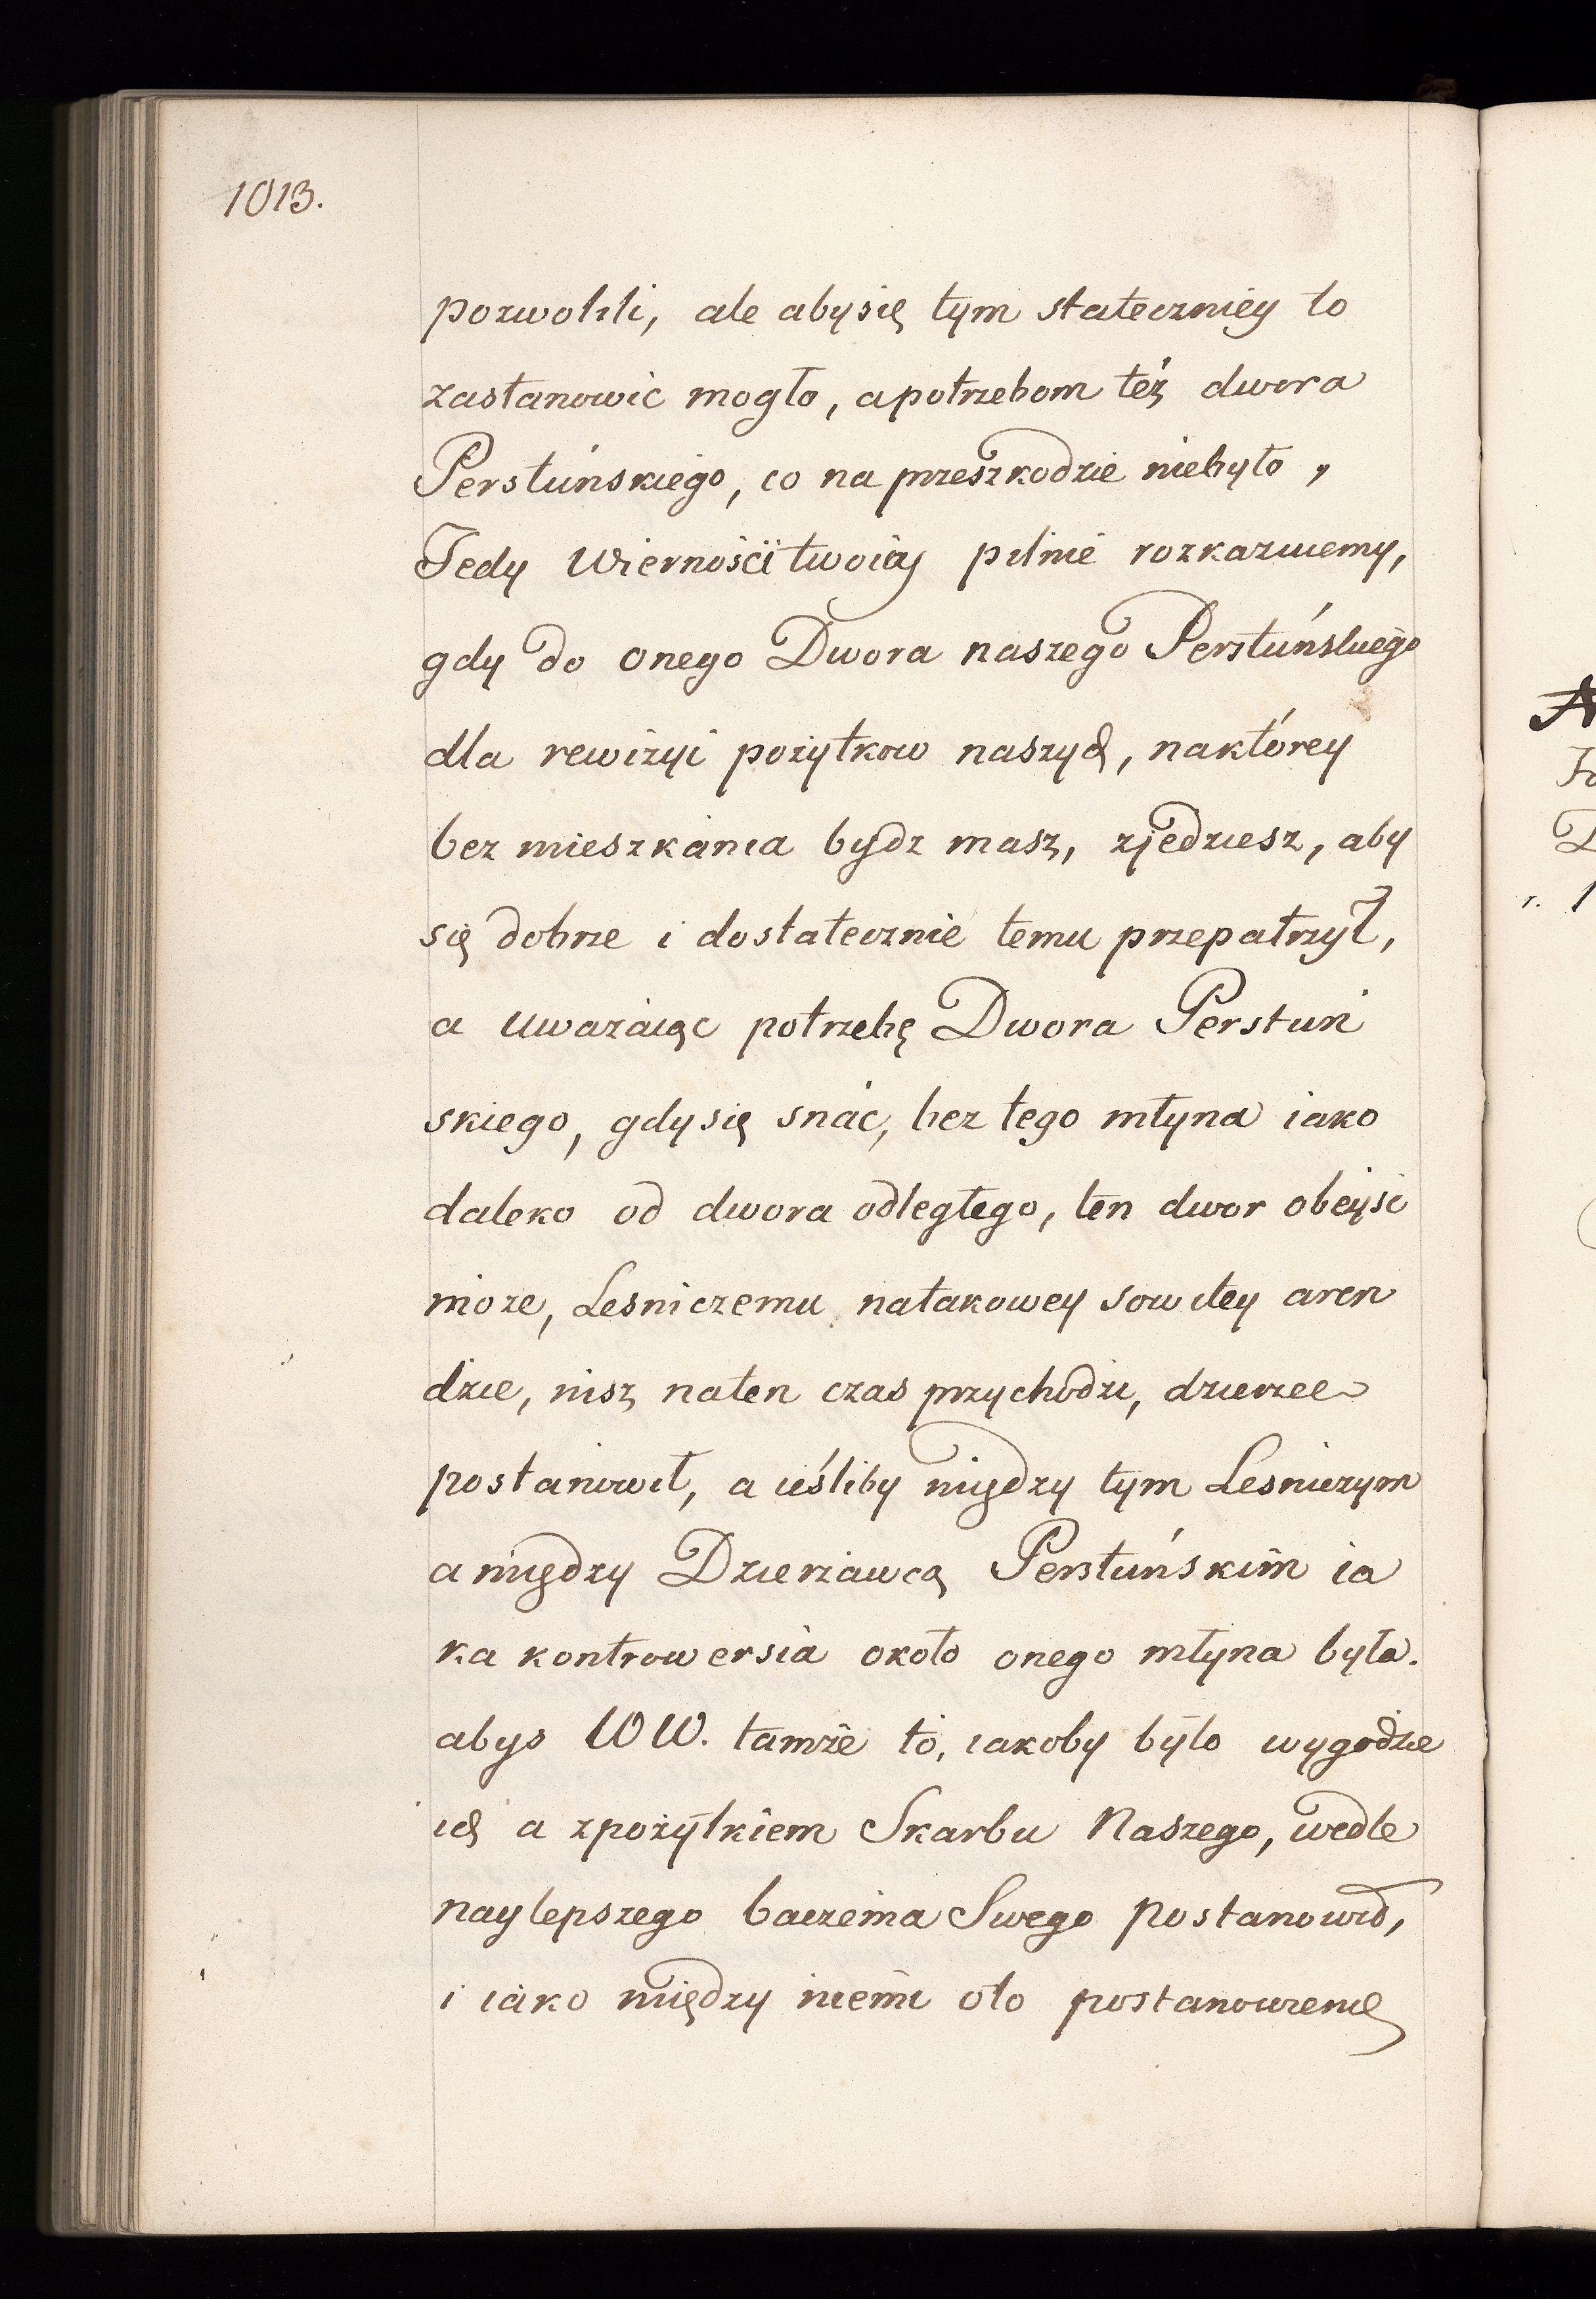 1013.
pozwolili, ale aby się tym stateczniey to
zastanowić mogło, a potrzebom też dwora
Perstuńskiego, co na przeszkodzie niebyło,
Tedy Wierności twoiey pilnie rozkazuiemy,
gdy do onego Dwora naszego Perstuńskiego
dla rewizyi pożytkow naszych, naktórey
bez mieszkania bydz masz, zjedziesz, aby
się dobrze i dostatecznie temu przepatrzył,
a uważaiąc potrzebę Dwora Perstuń
skiego, gdy się snać, bez tego młyna iako
daleko od dwora odległego, ten dwor obeyść
może, Lesniczemu natakowey sowitey aren
dzie, nisz naten czas przychodzi, dzierżeć
postanowił, a ieśliby między tym Lesniczym
a między Dzierżawcą Perstuńskim ia
ka kontrowersia około onego młyna była.
abyś W W. tamże to, iakoby było wygodzie
ich a zpożytkiem Skarbu Naszego, wedle
naylepszego baczenia Swego postanowił,
i iako między niemi oto postanowienie